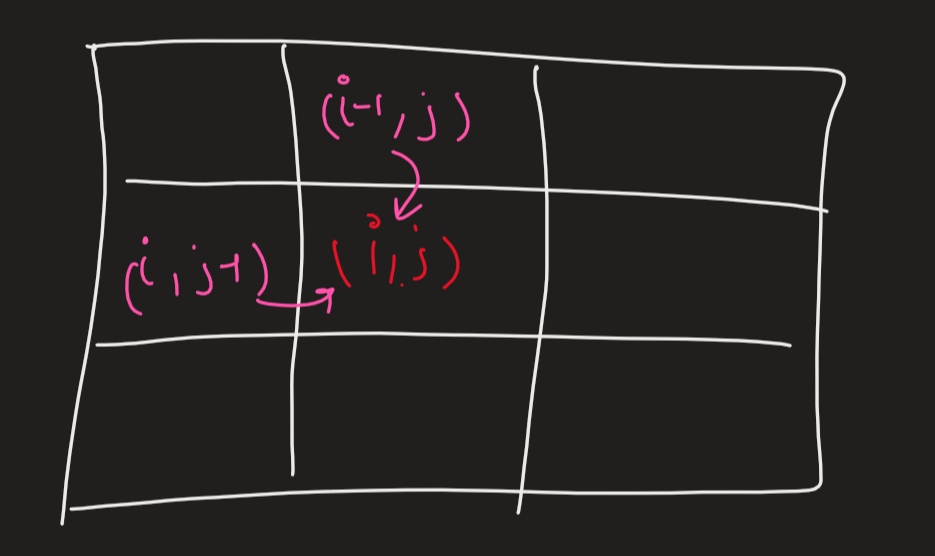 (i-1, j)
(i, j-1) (i, j)